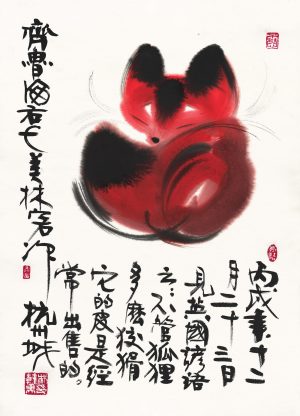 丙戌年十二
月二十三日
見英國諺語
云：不管狐狸
多麽狡猾
它的皮是經
常出售的。
齊魯海右美林客次 杭州城